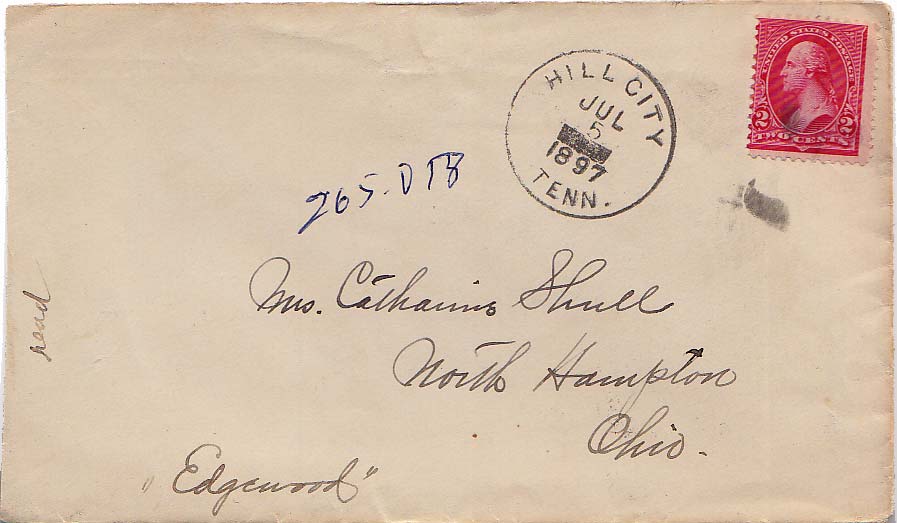 UNITED STATES POSTAGE
2 2
TWO CENTS
HILL CITY
JUL
5
1897
TENN.
265-D T8
Mrs. Catharine Shull
North Hampton
Ohio.
"Edgewood"
read